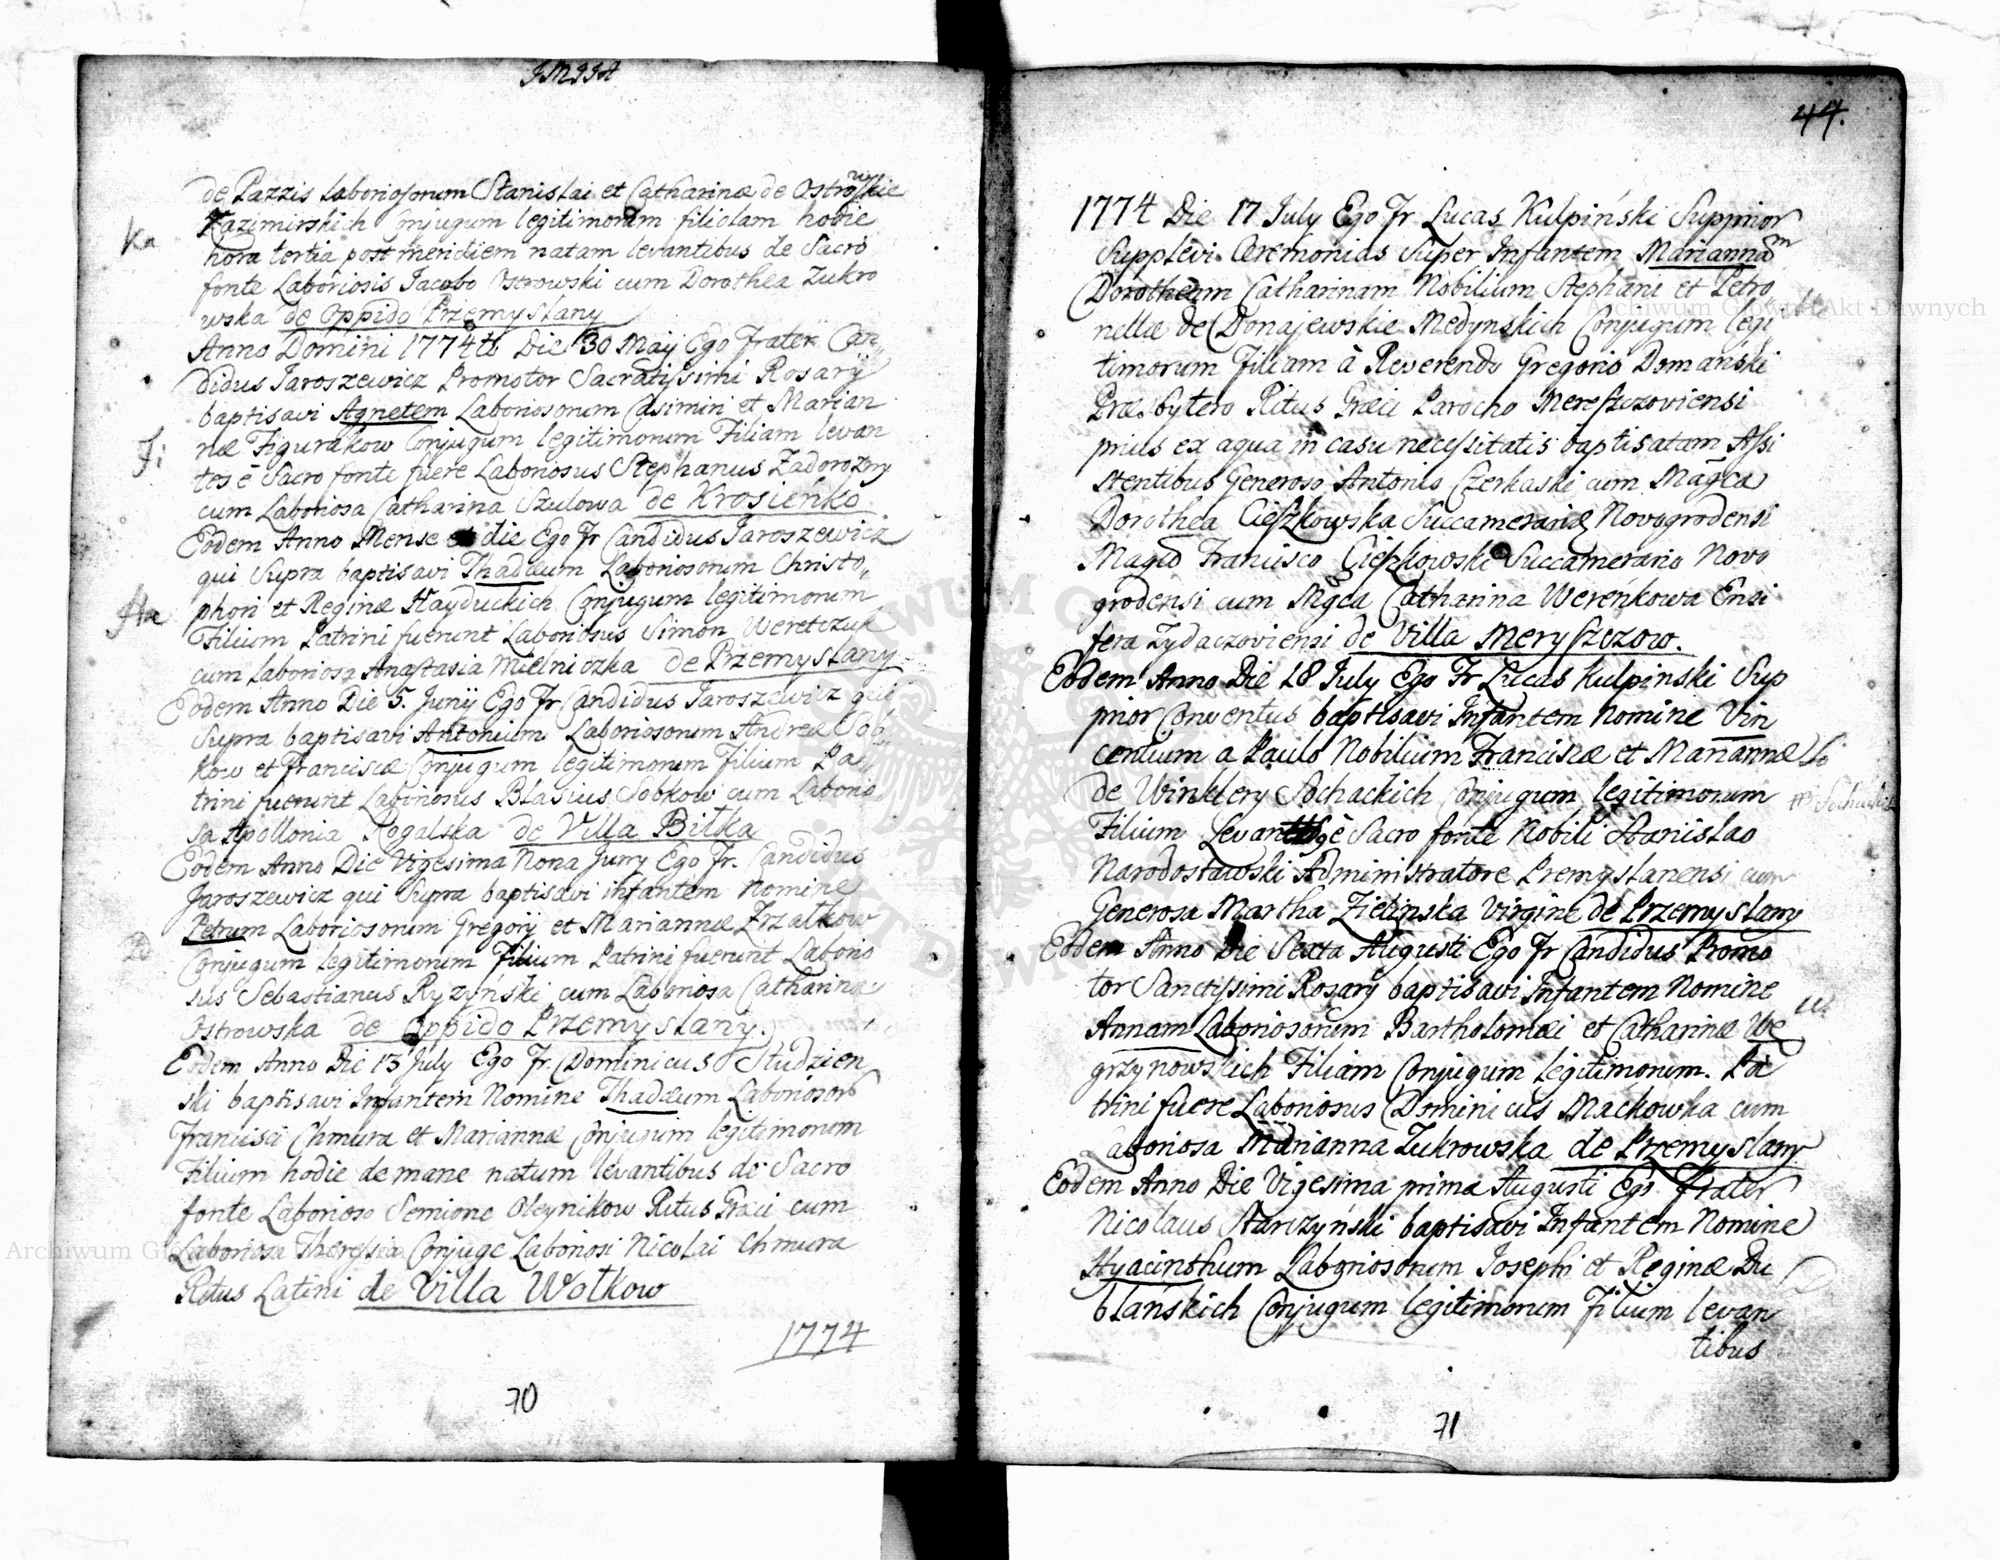 de Pazzis Laboriosorum Stanislai et Catharinæ de Ostrowskie
Ka
Kazimirskich Conjugum legitimorum filiolam hodie
hora tertia post meridiem natam levantibus de Sacro
fonte Laboriosis Jacobo Ostrowski cum Dorothea Zukro
wska de Oppido Przemyslany
Anno Domini 1774to Die 30 Maij Ego Frater Can„
didus Jaroszewicz Promotor Sacratissimi Rosarij
baptisavi Agnetem Laboriosorum Casimiri et Marian
Fi
næ Figurakow Conjugum legitimorum Filiam levan
tes è Sacro fonte fuere Laboriosus Stephanus Zadorozny
cum Laboriosa Catharina Szulowa de Krosieńko
Eodem Anno Mense et die Ego Fr Candidus Jaroszewicz
qui Supra baptisavi Thadæum Laboriosorum Christo„
Ha
phori et Reginæ Hayduckich Conjugum legitimorum
Filium Patrini fuerunt Laboriosus Simon Weretczuk
cum laboriosa Anastasia Mielniczka de Przemyslany
Eodem Anno Die 5. Junij Ego Fr Candidus Jaroszewicz qui
Supra baptisavi Antonium Laboriosorum Andreæ Sob„
kow et Franciscæ Conjugum legitimorum Filium Pa„
trini fuerunt Laboriosus Blasius Sobkow cum Laborio„
sa Apollonia Rogalska de Villa Biłka
Eodem Anno Die Vigesima Nona Juny Ego Fr. Candidus
Jaroszewicz qui Supra baptisavi infantem Nomine
Petrum Laboriosorum Gregorij et Mariannæ Zrzałkow
Conjugum Legitimorum Filium Patrini fuerunt Laborio
sus Sebastianus Ryzyński cum Laboriosa Catharina
Ostrowska de Oppido Przemyslany.
Eodem Anno Die 13 July Ego Fr. Dominicus Studzien
ski baptisavi Infantem Nomine Thadæum Laboriosor
Francisci Chmura et Mariannæ Conjugum legitimorum
Filium hodie de mane natum levantibus de Sacro
fonte Laborioso Semione Oleynikow Ritus Græci cum
Laboriosa Theresia Conjuge Laboriosi Nicolai Chmura
Ritus Latini de Villa Wołkow
1774
70
44.
1774 Die 17 July Ego Fr Lucas Kulpiński Supprior
Supplevi Ceremonias Super Infantem Mariannam
Dorotheam Catharinam Nobilium Stephani et Petro
nellæ de Donajewskie Medynskich Conjugum legi
timorum Filiam à Reverendo Gregorio Domański
Præsbytero Ritus Græci Parocho Mereszczoviensi
prius ex aqua in casu necessitatis baptisatam Assi
stentibus Generoso Antonio Czerkaski cum Magca
Dorothea Cieszkowska Succamerariæ Novogrodensi
Magco Francisco Cieszkowski Succamerario Novo
grodensi cum Mgca Catharina Wereńkowa Ensi
fera Zydaczoviensi de Villa Meryszczow.
Eodem Anno Die 18 July Ego Fr Lucas Kulpinski Sup
prior Conventus baptisavi Infantem Nomine Vin
centium a Paulo Nobilium Franciscæ et Mariannæ So
de Winklery Sochackich Conjugum legitimorum
Filium Levantibg è Sacro fonte Nobili Stanislao
Narodosławski Administratore Premyslanensi cum
Generosa Martha Zielinska Virgine de Przemyslany
Eodem Anno Die Sexta Augusti Ego Fr Candidus Promo
tor Sanctissimi Rosarij baptisavi Infantem Nomine
Annam Laboriosorum Bartholomæi et Catharinæ We
grzynowskich Filiam Conjugum Legitimorum. Pa
trini fuere Laboriosus Dominicus Mackowka cum
Laboriosa Marianna Zukrowska de Przemyslany
Eodem Anno Die Vigesima prima Augusti Ego Frater
Nicolaus Starczyński baptisavi Infantem Nomine
Hyacinthum Laboriosorum Josephi et Reginæ Du
blańskich Conjugum legitimorum Filium levan
tibus
71
Archiwum Główne Akt Dawnych